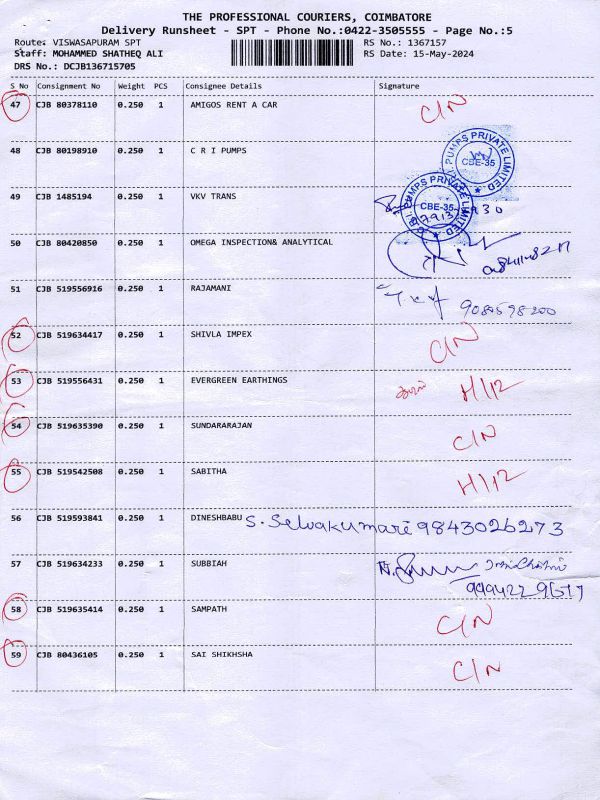 THE PROFESSIONAL COURIERS, COIMBATORE
Delivery Runsheet - SPT - Phone No.:0422-3505555 - Page No.:5
Route: VISWASAPURAM SPT RS No.: 1367157
Staff: MOHAMMED SHATHEQ ALI RS Date: 15-May-2024
DRS No.: DCJB136715705
S No Consignment No Weight PCS Consignee Details Signature
47 CJB 80378110 0.250 1 AMIGOS RENT A CAR C/N
48 CJB 80198910 0.250 1 C R I PUMPS PUMPS PRIVATE LIMITED CBE-35
49 CJB 1485194 0.250 1 VKV TRANS PUMPS PRIVATE LIMITED CBE-35
50 CJB 80420850 0.250 1 OMEGA INSPECTION& ANALYTICAL
51 CJB 519556916 0.250 1 RAJAMANI
52 CJB 519634417 0.250 1 SHIVLA IMPEX C/N
53 CJB 519556431 0.250 1 EVERGREEN EARTHINGS H/12
54 CJB 519635390 0.250 1 SUNDARARAJAN C/N
55 CJB 519542508 0.250 1 SABITHA H/12
56 CJB 519593841 0.250 1 DINESHBABU S. Selvakumare 9843026273
57 CJB 519634233 0.250 1 SUBBIAH
58 CJB 519635414 0.250 1 SAMPATH C/N
59 CJB 80436105 0.250 1 SAI SHIKHSHA C/N